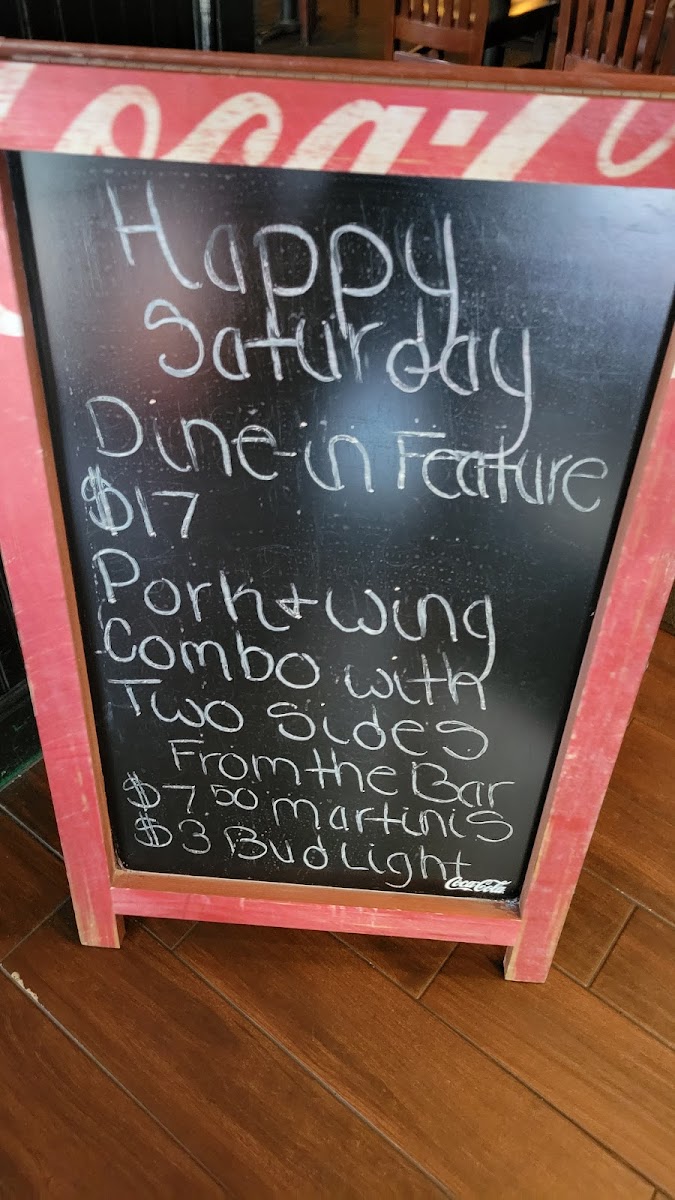 Coca-Co
Happy
Saturday
Dine-in Feature
$17
Pork + wing
Combo with
Two Sides
From the Bar
$7.50 martinis
$3 Bud Light
Coca-Cola